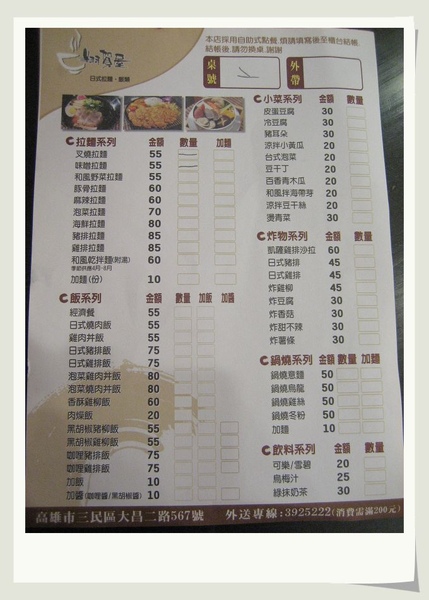 本店採用自助式點餐,煩請填寫後至櫃台結帳,
結帳後,請勿換桌,謝謝
日式拉麵、飯類
桌號
外帶
拉麵系列 金額 數量 加麵
叉燒拉麵 55
味噌拉麵 55
和風野菜拉麵 55
豚骨拉麵 60
麻辣拉麵 60
泡菜拉麵 70
海鮮拉麵 80
豬排拉麵 85
雞排拉麵 85
和風乾拌麵(附湯) 60
加麵(份) 10
飯系列 金額 數量 加飯 加醬
經濟餐 55
日式燒肉飯 55
雞肉丼飯 55
日式豬排飯 75
日式雞排飯 75
泡菜雞肉丼飯 80
泡菜燒肉丼飯 80
香酥雞柳飯 60
肉燥飯 20
黑胡椒豬柳飯 55
黑胡椒雞柳飯 55
咖哩豬排飯 75
咖哩雞排飯 75
加飯 10
加醬(咖哩醬/黑胡椒醬) 10
小菜系列 金額 數量
皮蛋豆腐 30
冷豆腐 30
豬耳朵 30
涼拌小黃瓜 20
台式泡菜 20
豆干丁 20
百香青木瓜 20
和風拌海帶芽 20
涼拌豆干絲 20
燙青菜 30
炸物系列 金額 數量
凱薩雞排沙拉 60
日式豬排 45
日式雞排 45
炸雞柳 40
炸豆腐 30
炸香菇 30
炸甜不辣 30
炸薯條 30
鍋燒系列 金額 數量 加麵
鍋燒意麵 50
鍋燒烏龍 50
鍋燒雞絲 50
鍋燒冬粉 50
加麵 10
飲料系列 金額 數量
可樂/雪碧 20
烏梅汁 25
綠抹奶茶 30
高雄市三民區大昌二路567號 外送專線:3925222(消費需滿200元)